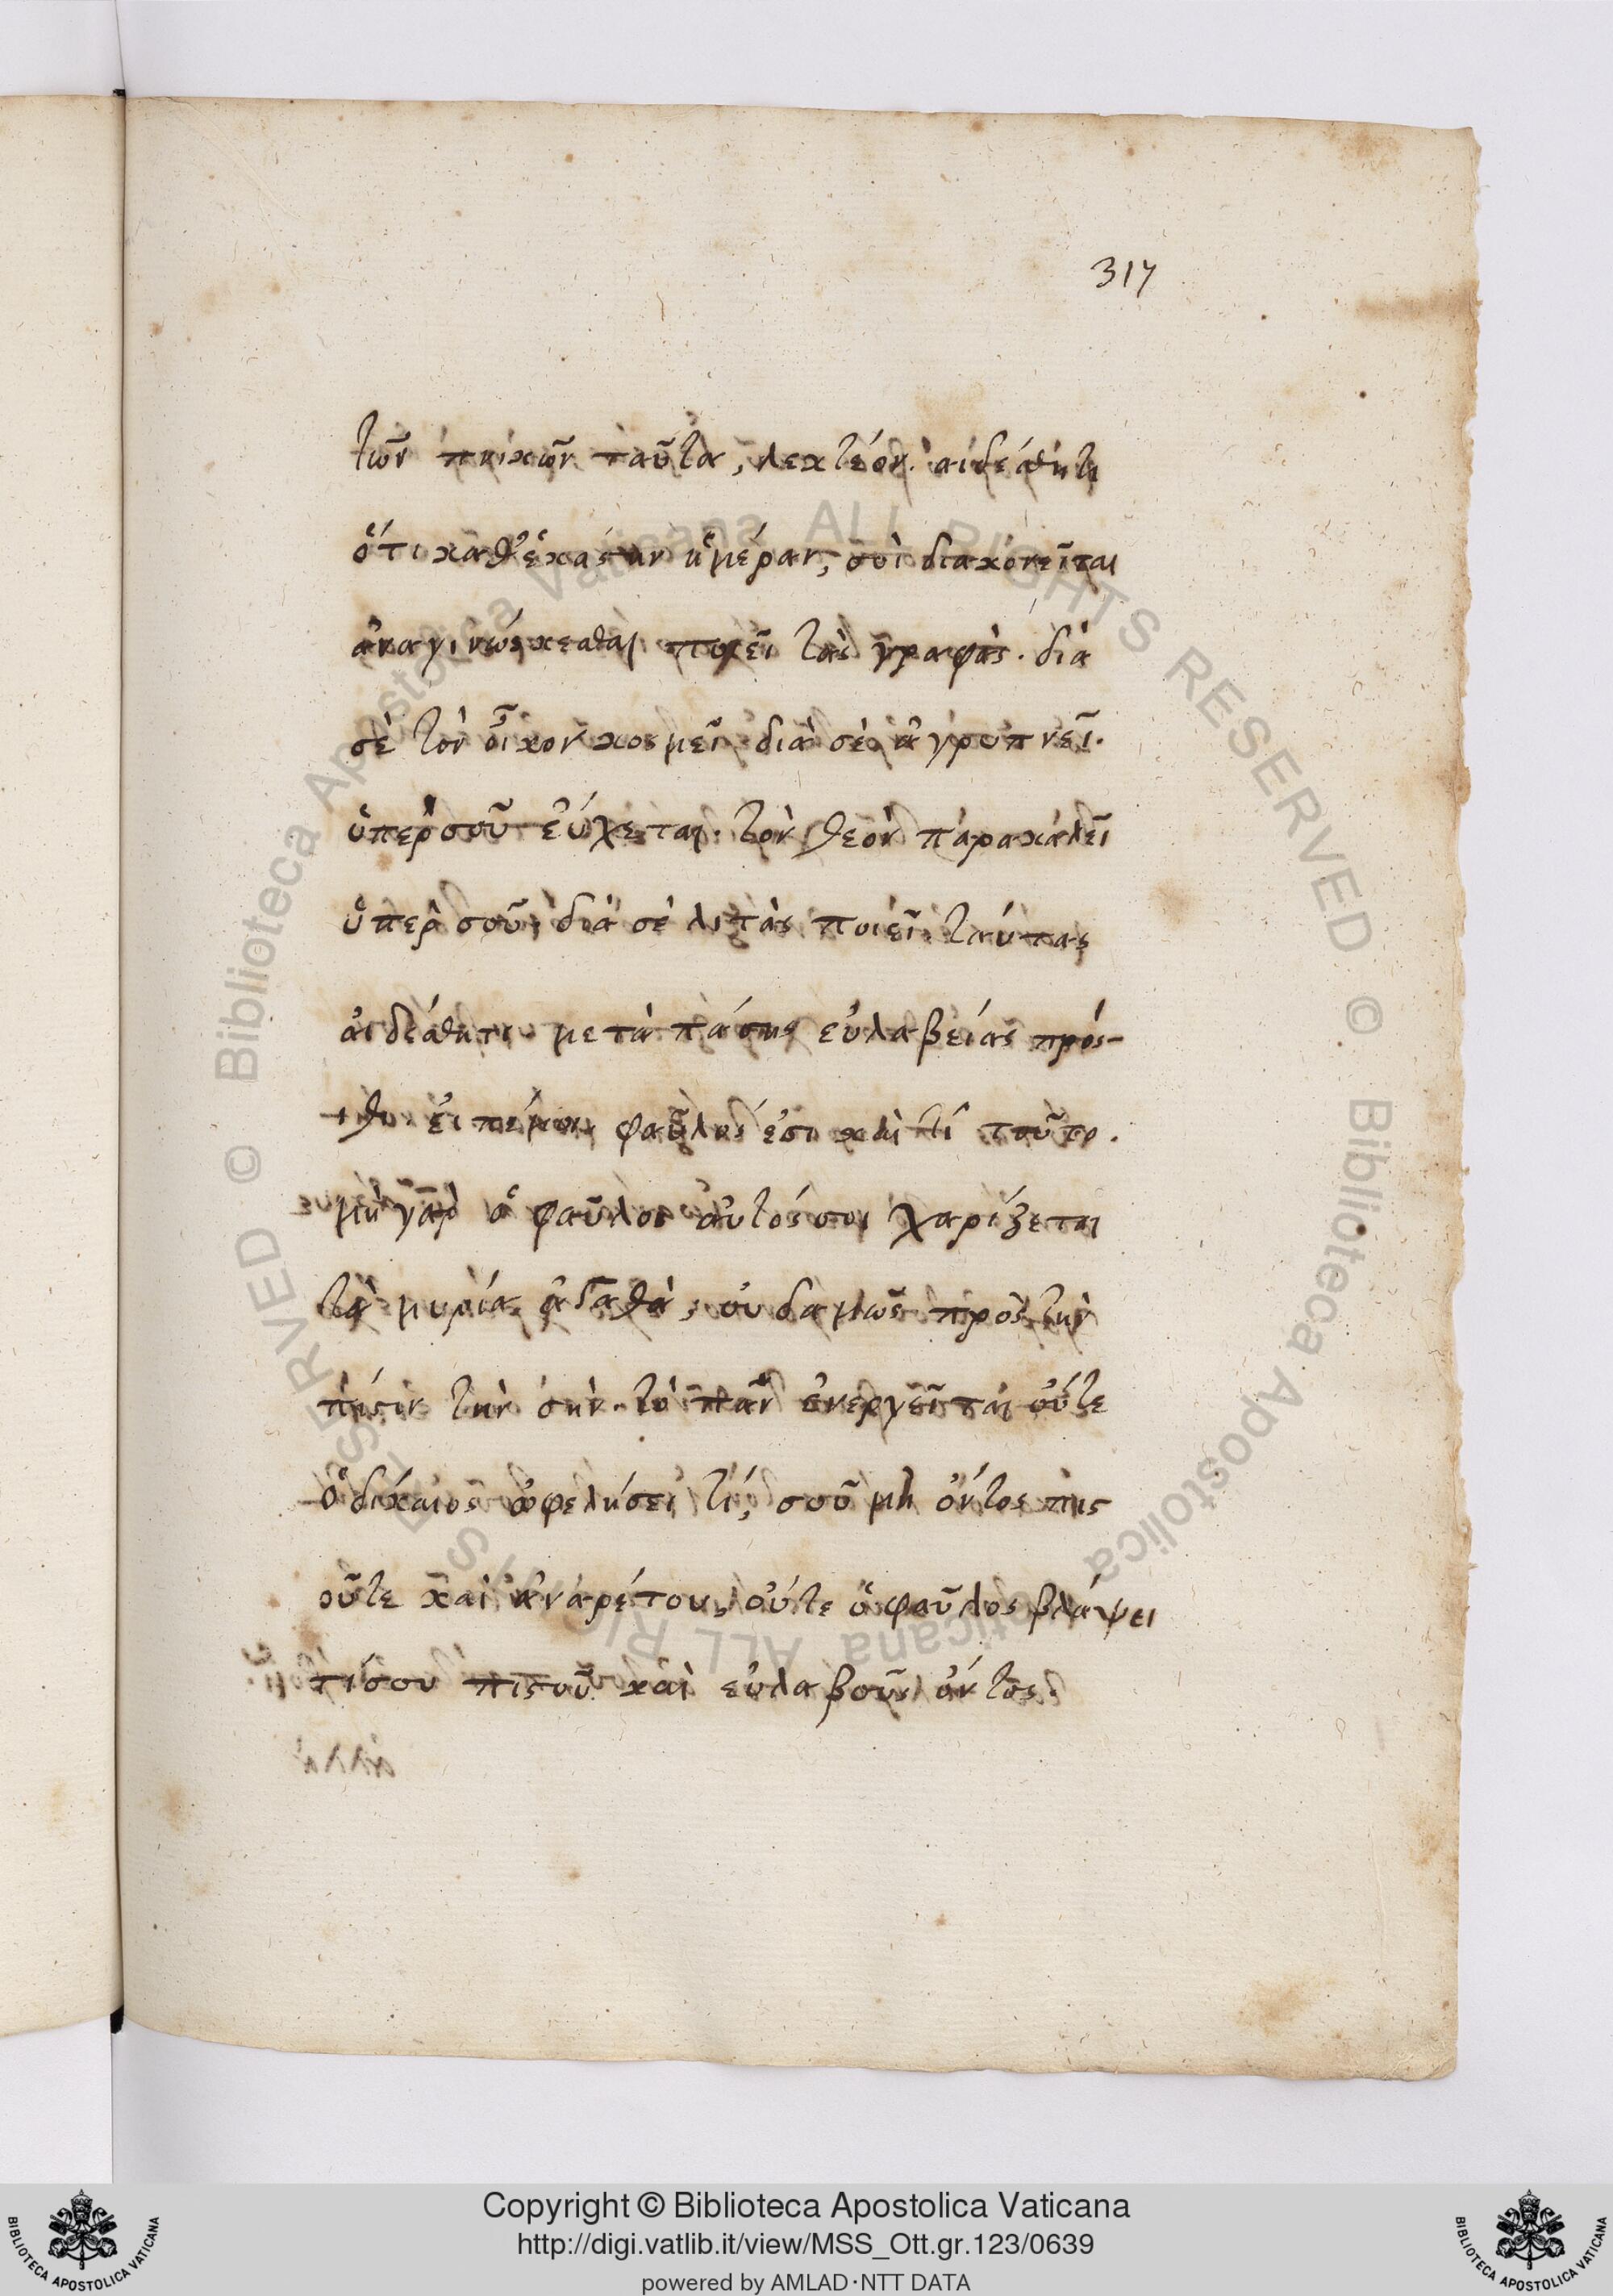 317
τῶν πνικῶν ταῦτα, λεκτέον. αἰδέσθητι
ὅτι καθ' ἑκάστην ἡμέραν, σοὶ διακονεῖται
ἀναγινώσκεσθαι ποιεῖ τὰς γραφὰς. διὰ
σὲ τὸν οἶκον κοσμεῖ διὰ σὲ ἀγρυπνεῖ.
ὑπὲρ σοῦ εὔχεται. τὸν θεὸν παρακαλεῖ
ὑπὲρ σοῦ. διὰ σὲ λιτὰς ποιεῖ. ταύτας
αἰδέσθητι μετὰ πάσης εὐλαβείας πρόσ-
εἰπέ μοι φαῦλός ἐστι καὶ τί τοῦτο.
μὴ γὰρ ὁ φαῦλος αὐτός σοι χαρίζεται
τὰ μυρία ἀγαθὰ, οὐδαμῶς πρὸς τὴν
πίστιν τὴν σὴν. τὸ πᾶν ἐνεργεῖται οὔτε
ὁ δίκαιος ὠφελήσει τί, σοῦ μὴ ὄντος
οὔτε καὶ ἐναρέτου, οὔτε ὁ φαῦλος βλάψει
τί σου πιστοῦ καὶ εὐλαβοῦς ὄντος.
Copyright © Biblioteca Apostolica Vaticana
http://digi.vatlib.it/view/MSS_Ott.gr.123/0639
powered by AMLAD·NTT DATA
BIBLIOTECA APOSTOLICA VATICANA
BIBLIOTECA APOSTOLICA VATICANA
© Biblioteca Apostolica Vaticana ALL RIGHTS RESERVED
© Biblioteca Apostolica Vaticana ALL RIGHTS RESERVED